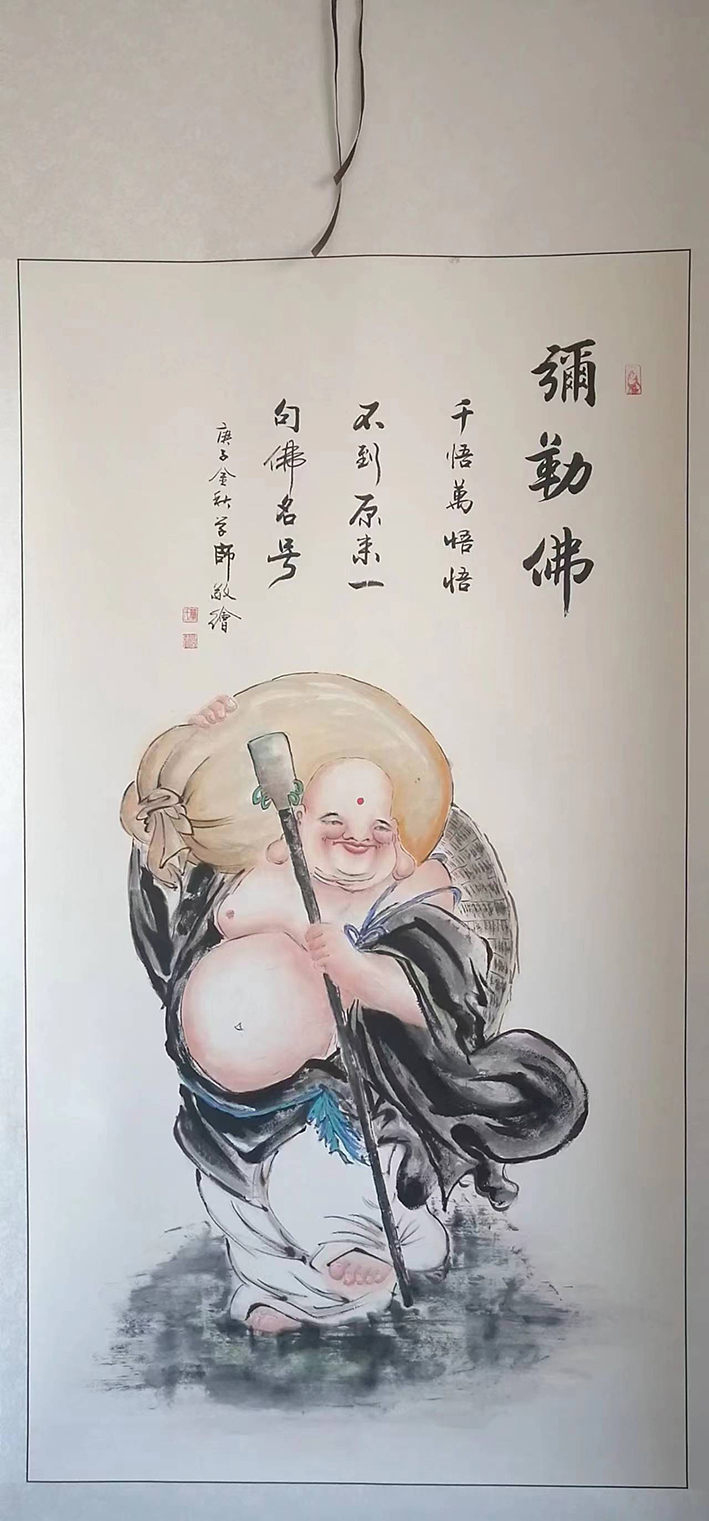 彌勒佛
千悟萬悟悟
不到原來一
句佛名号
庚子金秋学師敬繪